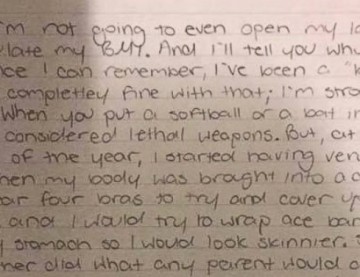 I'm not going to even open my la
ulate my BMI. And I'll tell you why
ce I can remember, I've been a "
completley fine with that; I'm stro
When you put a softball or a bat in
considered lethal weapons. But, at
of the year, I started having ver
hen my body was brought into a c
ar four bras to try and cover up
and I would try to wrap ace ban
y stomach so I would look skinnier.
her did what any parent would d